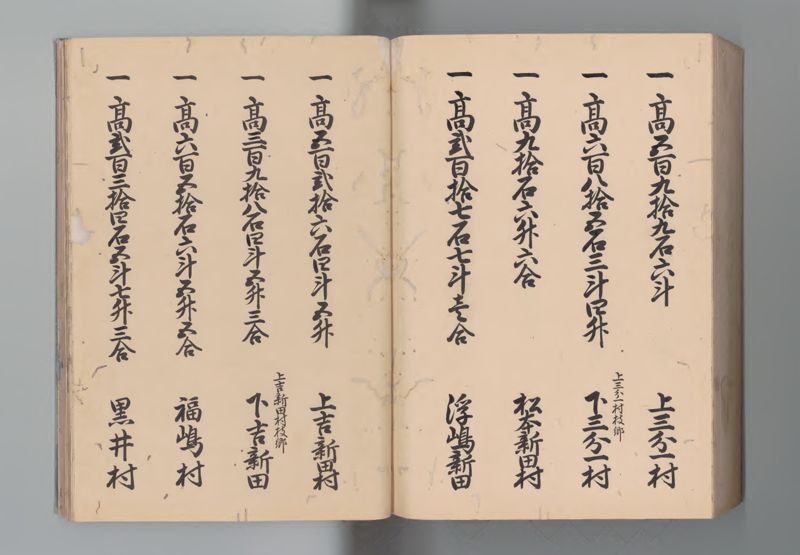 一 高五百九拾九石六斗 上三分一村
一 高六百八拾五石三斗四升 上三分一村枝郷 下三分一村
一 高九拾石六升六合 松本新田村
一 高弐百拾七石七斗壱合 浮嶋新田
一 高五百弐拾六石四斗五升 上吉新田村
一 高三百九拾八石四斗五升三合 上吉新田村枝郷 下吉新田
一 高六百五拾石六斗五升五合 福嶋村
一 高弐百三拾四石五斗七升三合 黒井村